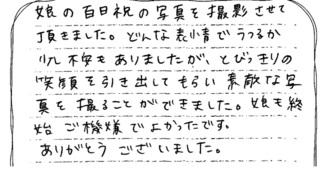 娘の百日祝の写真を撮影させて
頂きました。どんな表情でうつるか
少し不安もありましたが、とびっきりの
笑顔を引き出してもらい素敵な写
真を撮ることができました。娘も終
始ご機嫌でよかったです。
ありがとうございました。